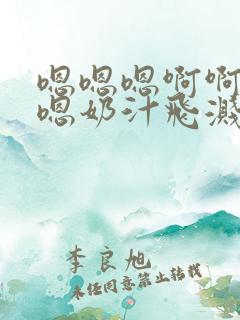 嗯嗯嗯啊啊
嗯奶汁飞溅
李良旭
未经同意禁止转载